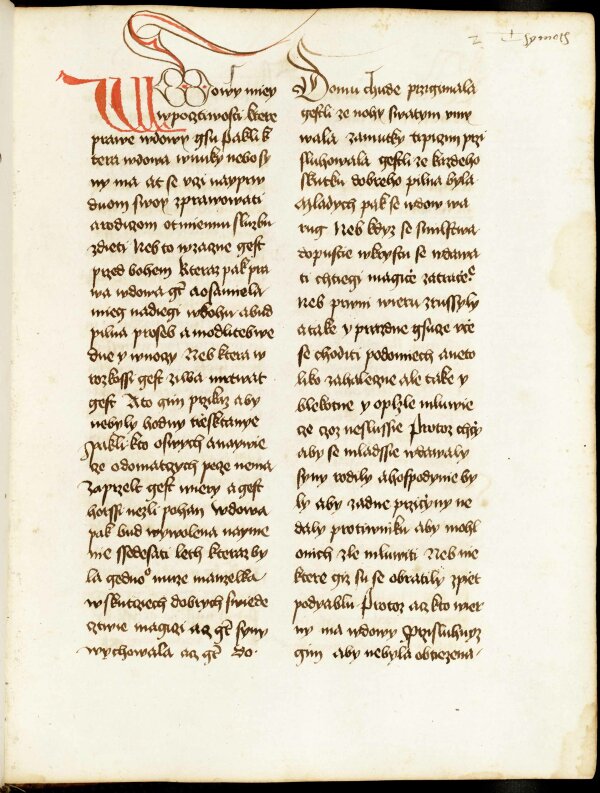 Wdowy miey
w poczliwosti ktere
prawe wdowy gsu Paklik
tera wdowa wnuky nebo sy
ny ma at se vczi nayprw
duom swoy zprawowati
a rodiczom ot miemu sluzbu
zdieti Neb to wzazne gest
przed bohem Kteraz pak pra
wa wdowa gt a osamiela
mieg nadiegi w bohu a bud
pilna proseb a modliteb we
dne y w noczy Neb ktera w
rozkossi gest ziwa mrtwat
gest A to gim przikaz aby
nebyly hodny tresktanye
Pakli kto oswych a naywie
cze o domaczych pecze nema
zaprzelt gest wiery a gest
horssi nezli pohan Wdowa
pak bud wywolena nayme
nie ssedesati leth kteraz by
la gednoo muze manzelka
w skutciech dobrych swiede
cztwie magiczi acz gt syny
wychowala acz gt do
2 Thymoth
Domu chude przigimala
gestli ze nohy swatym vmy
wala zamutky trpizim przi
sluhowala gestli ze kazdeho
skutku dobreho pilna byla
Mladych pak se wdow wa
rug Neb kdyz se smilstwa
dopustie w krystu se wdawa
ti chtiegi magicze zatraceo
Neb prwni wieru zrussyly
a take y prazdne gsucze vcze
se choditi po domiech a neto
liko zahaleczne ale take y
blekotne y oplzle mluwie
cze czoz neslussie Protoz chczy
aby se mladssie wdawaly
syny rodily a hospodynie by
ly aby zadne prziczyny ne
daly protiwniku aby mohl
o nich zle mluwiti Neb nie
ktere giz su se obratily zpiet
po dyablu Protoz acz kto wier
ny ma wdowy Przisluhuyz
gim aby nebyla obtiezena